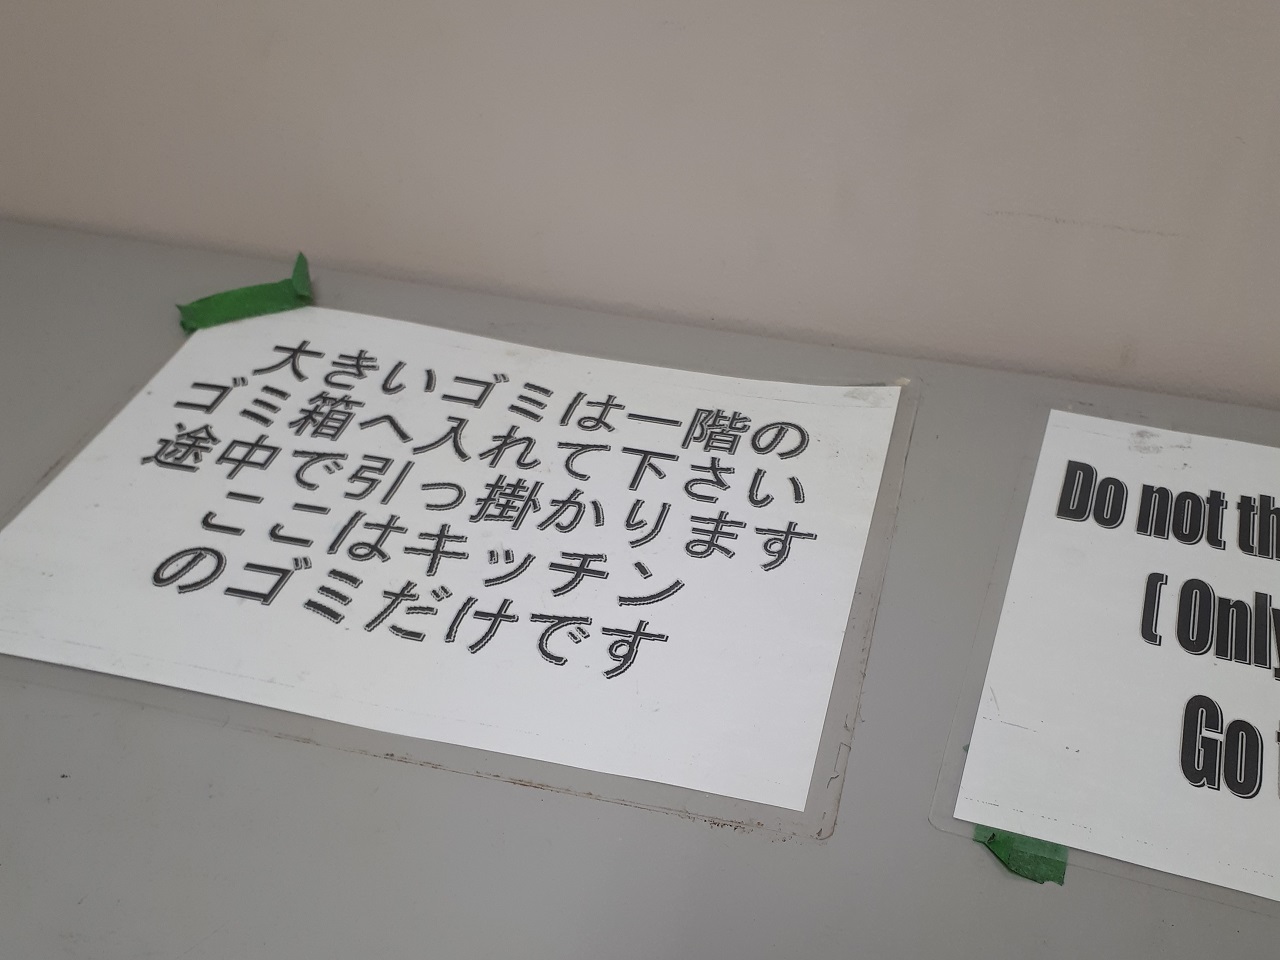 大きいゴミは一階の
ゴミ箱へ入れて下さい
途中で引っ掛かります
ここはキッチン
のゴミだけです
Do not th
( Only
Go